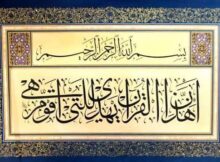 بسم الله الرحمن الرحيم
إن هذا القرآن يهدي للتي هي أقوم